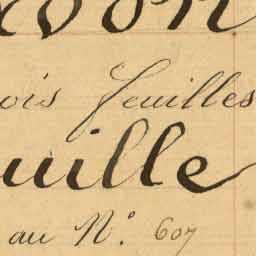 ois feuilles
uille
au N.° 607